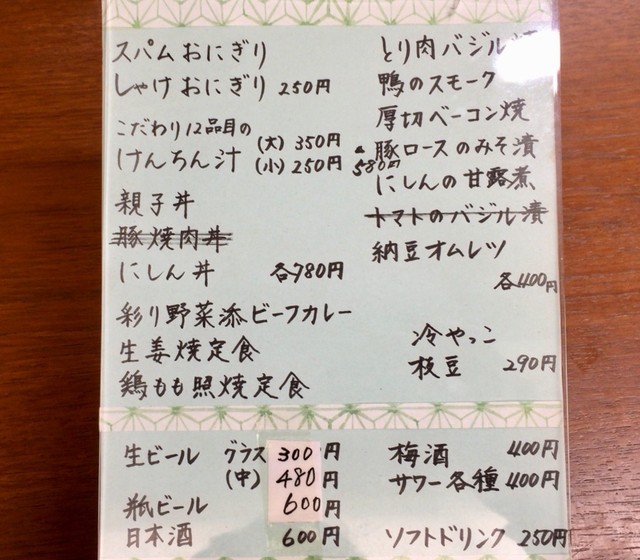 スパムおにぎり
しゃけおにぎり 250円
こだわり12品目の
けんちん汁 (大) 350円
(小) 250円
親子丼
豚焼肉丼
にしん丼 各980円
彩り野菜添ビーフカレー
生姜焼定食
鶏もも照焼定食
とり肉バジル焼
鴨のスモーク
厚切ベーコン焼
豚ロースのみそ漬
580円
にしんの甘露煮
トマトのバジル漬
納豆オムレツ
各400円
冷やっこ
枝豆 290円
生ビール グラス 300円
(中) 480円
瓶ビール 600円
日本酒 600円
梅酒 400円
サワー各種 400円
ソフトドリンク 250円